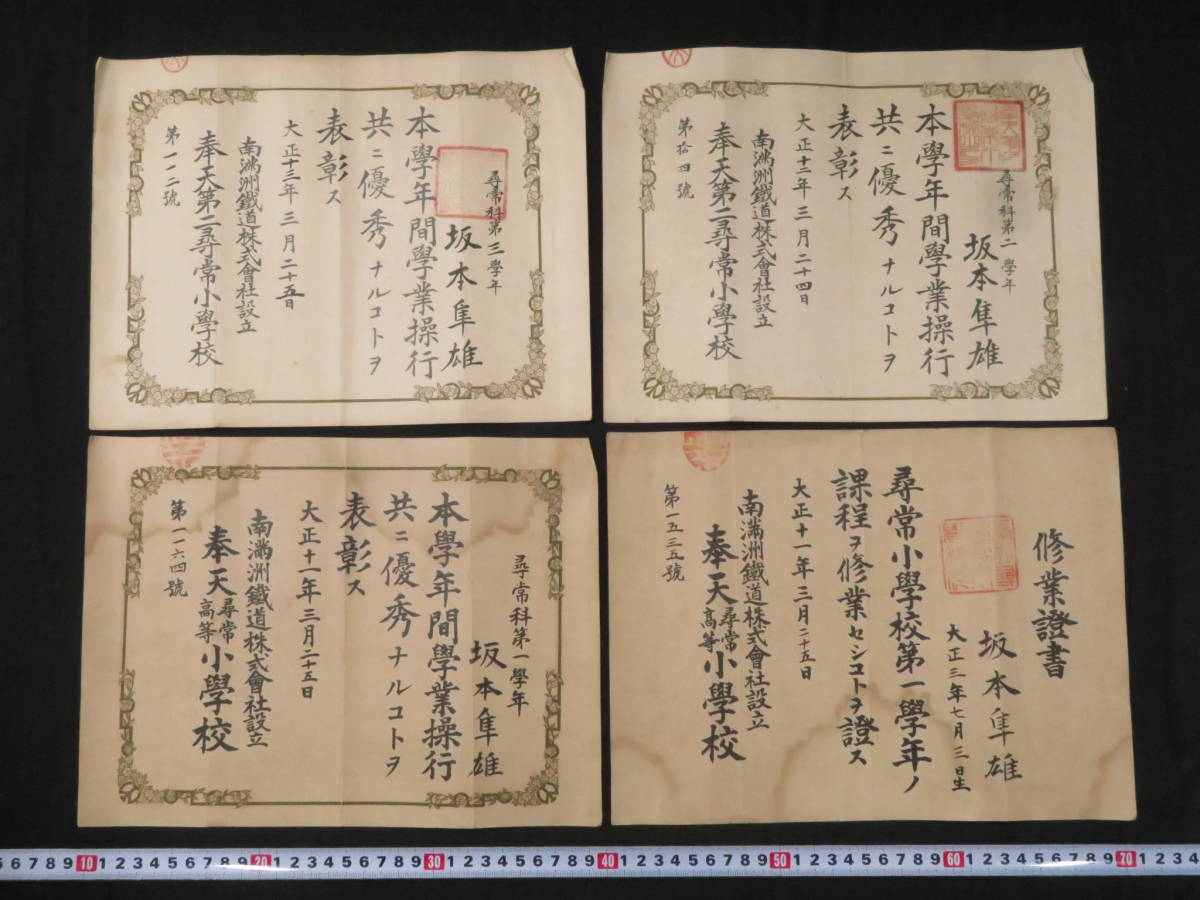 尋常科第三學年
坂本隼雄
本學年間學業操行
共ニ優秀ナルコトヲ
表彰ス
大正十三年三月二十五日
南滿洲鐵道株式會社設立
奉天第二尋常小學校
第一一二號
尋常科第二學年
坂本隼雄
本學年間學業操行
共ニ優秀ナルコトヲ
表彰ス
大正十二年三月二十四日
南滿洲鐵道株式會社設立
奉天第二尋常小學校
第拾四號
尋常科第一學年
坂本隼雄
本學年間學業操行
共ニ優秀ナルコトヲ
表彰ス
大正十一年三月二十五日
南滿洲鐵道株式會社設立
奉天尋常高等小學校
第一一六四號
修業證書
坂本隼雄
大正三年七月三日生
尋常小學校第一學年ノ
課程ヲ修業セシコトヲ證ス
大正十一年三月二十五日
南滿洲鐵道株式會社設立
奉天尋常高等小學校
第一五三五號
5 6 7 8 9 10 1 2 3 4 5 6 7 8 9 20 1 2 3 4 5 6 7 8 9 30 1 2 3 4 5 6 7 8 9 40 1 2 3 4 5 6 7 8 9 50 1 2 3 4 5 6 7 8 9 60 1 2 3 4 5 6 7 8 9 70 1 2 3 4